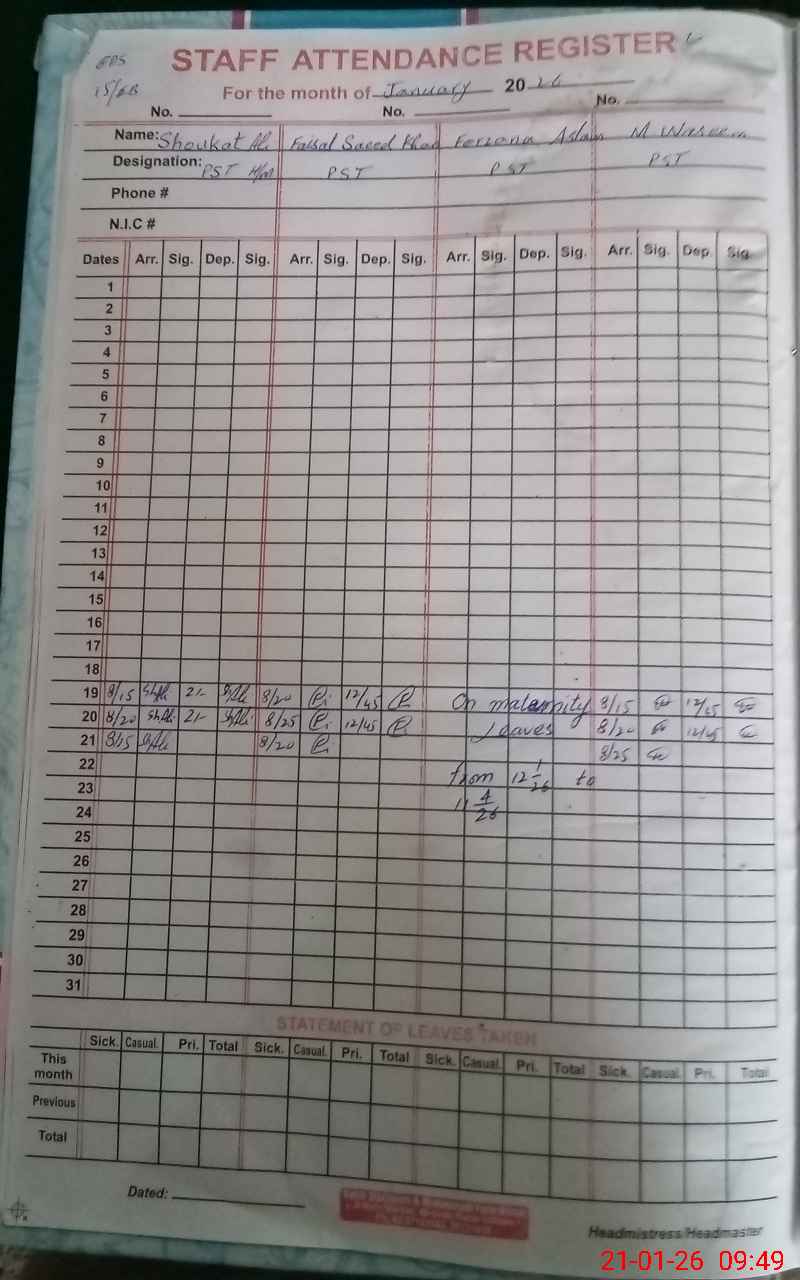 GPS
15/GB
STAFF ATTENDANCE REGISTER
For the month of January 2026
No. No. No.
Name: Shoukat Ali Faisal Saeed Khan Ferzana Aslam M Waseem
Designation: PST H/M PST PST PST
Phone #
N.I.C #
Dates Arr. Sig. Dep. Sig. Arr. Sig. Dep. Sig. Arr. Sig. Dep. Sig. Arr. Sig. Dep. Sig.
1
2
3
4
5
6
7
8
9
10
11
12
13
14
15
16
17
18
19 8/15 ShAli 2/- ShAli 8/20 12/45 On maternity 8/15 12/45
20 8/20 ShAli 2/- ShAli 8/25 12/45 Leaves 8/20 12/45
21 8/15 ShAli 8/20 8/25
22
from 12 1/26 to
23
11 4/26
24
25
26
27
28
29
30
31
STATEMENT OF LEAVES TAKEN
Sick. Casual. Pri. Total Sick. Casual. Pri. Total Sick. Casual. Pri. Total Sick. Casual. Pri. Total
This month
Previous
Total
Dated:
Headmistress/Headmaster
21-01-26 09:49